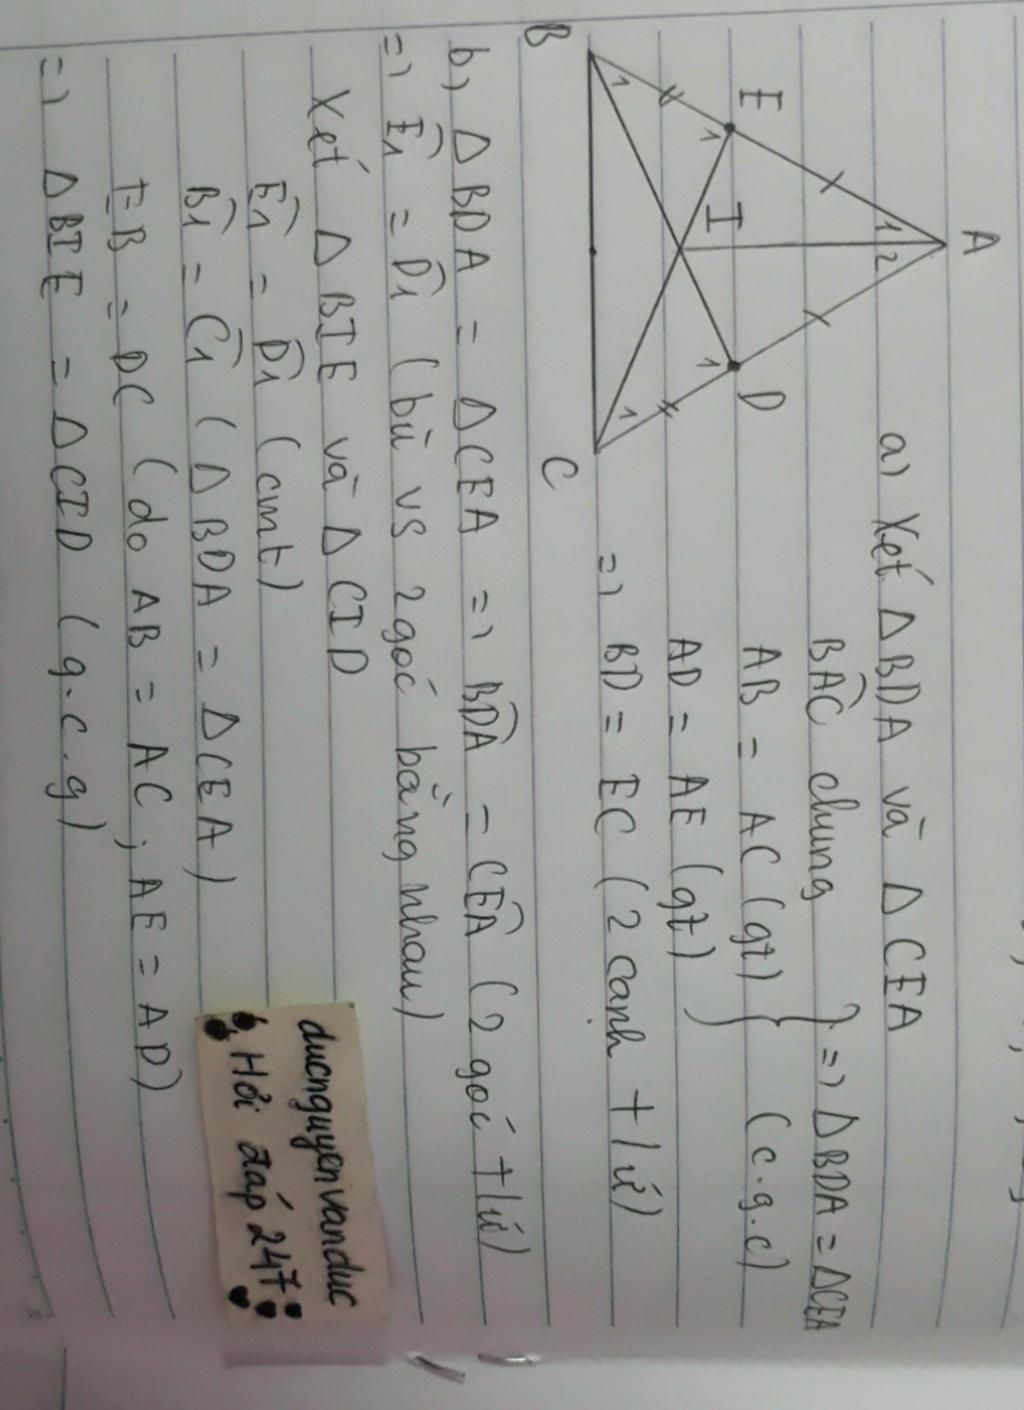 A
1 2
E
D
1
I
1
1
1
B
C
a) Xét Δ BDA và Δ CEA
BAC chung
AB = AC (gt)
AD = AE (gt)
} => Δ BDA = Δ CEA
(c.g.c)
=> BD = EC (2 cạnh t/ứ)
b) Δ BDA = Δ CEA => BDA = CEA (2 góc t/ứ)
=> E1 = D1 (bù vs 2 góc bằng nhau)
Xét Δ BIE và Δ CID
E1 = D1 (cmt)
B1 = C1 (Δ BDA = Δ CEA)
EB = DC (do AB = AC; AE = AD)
=> Δ BIE = Δ CID (g.c.g)
ducnguyenvanduc
Hỏi đáp 247